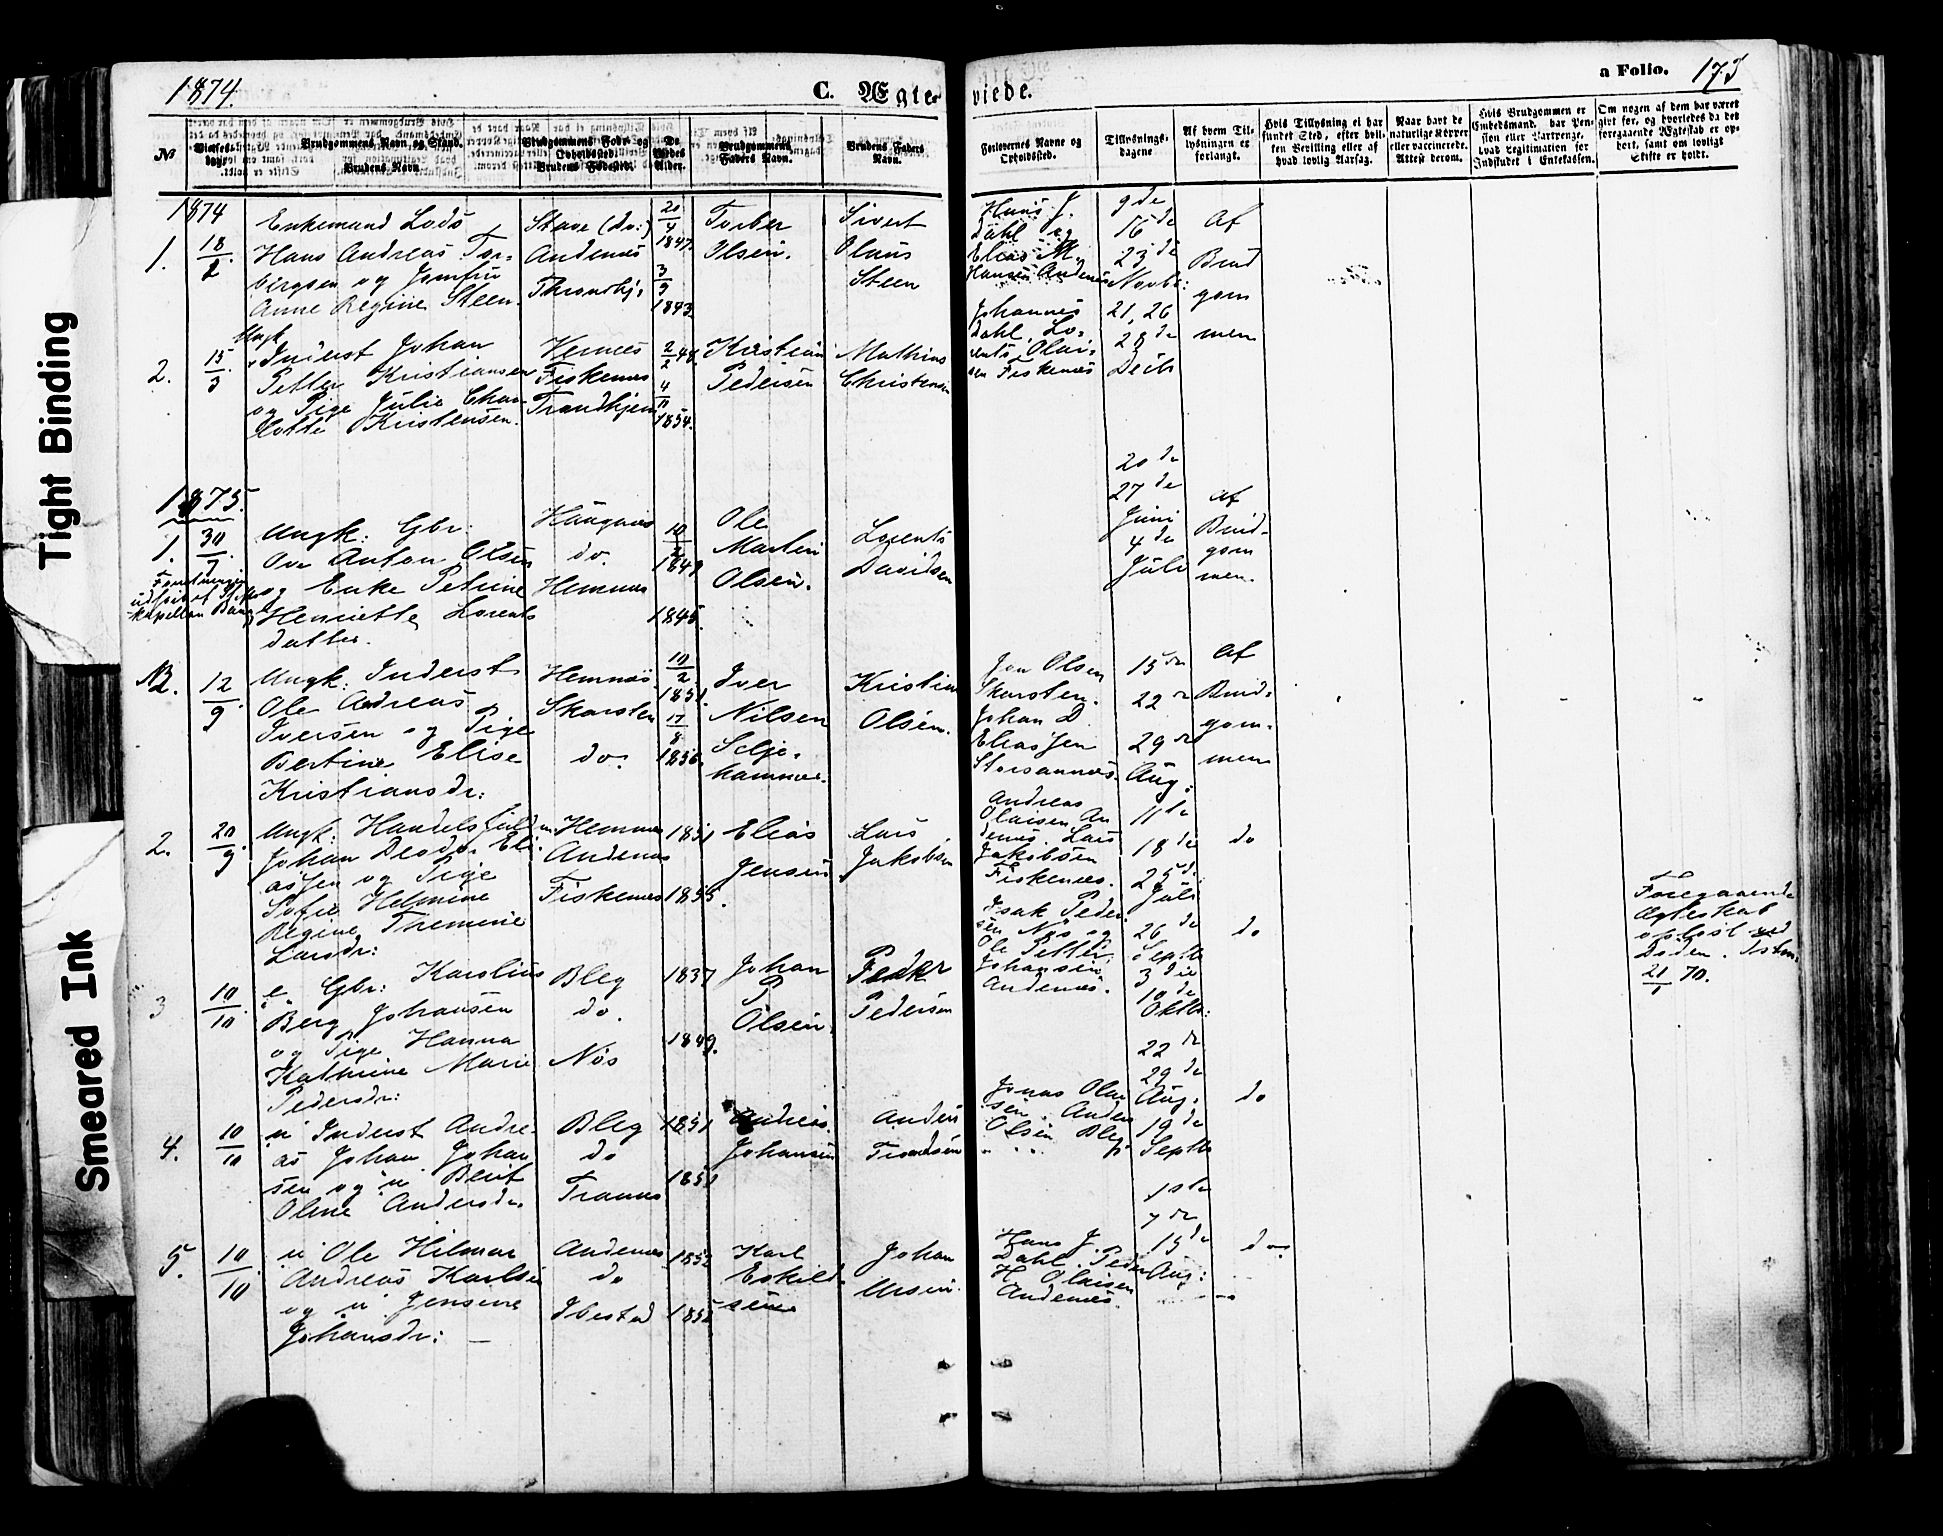 Tight Binding
Smeared Ink
1874.
C. Ægte-
viede.
a Folio. 173
No
Vielses-
dage.
Brudgommens Navn og Stand.
Brudens Navn.
Brudgommens Føde- og
Opholdssted.
Brudens Fødested.
De
Viedes
Alder.
Brudgommens
Faders Navn.
Brudens Faders
Navn.
Forlovernes Navne og
Opholdssted.
Tillysnings-
dagene
Af hvem Til-
lysningen er
forlangt.
Hvis Tillysning ei har
fundet Sted, efter hvil-
ken Bevilling eller af
hvad lovlig Aarsag.
Naar havt de
naturlige Kopper
eller vaccinerede.
Attest derom.
Hvis Brudgommen er
Embedsmand, har Pen-
sion eller Vartpenge,
hvad Legitimation for
Indskudet i Enkekassen.
Om nogen af dem har været
gift før, og hvorledes da det
foregaaende Ægteskab er op-
hørt, samt om lovligt
Skifte er holdt.
1874
1.
18/2.
Enkemand Lods
Hans Andreas Tor-
bergsen og Jomfru
Anne Regine Steen.
Stave (do:)
Andenes
Throndhj:
20/4
1847.
3/9
1843.
Torber
Olsen.
Sivert
Olaus
Steen
Hans J.
Dahl og
Elias M.
Hansen Andenes
9de
16de
23de
Novbr:
Af
Brud
gom
men
2.
15/3
Ungk
Inderst Johan
Petter Kristiansen
og Pige Julie Char
lotte Kristensen.
Hemnes
Fiskenes
Trondhjem
2/2 48.
4/11
1854.
Kristian
Pedersen
Mathias
Christensen
Johannes
Dahl, Lo-
rents Olai-
sen Fiskenes
21, 26
28de
Decb
1875.
1.
30/7.
Ungk: Gbr:
Ove Anton Olsen
og Enke Petrine
Henriette Lorents
datter.
Haugnes
do.
Hemnes
10/2
1849
1845.
Ole
Martin
Olsen.
Lorents
Davidsen
20de
27de
Juni
4de
Juli
Af
Brud-
gom
men.
2.
12/9.
Ungk: Inderst
Ole Andreas
Iversen og Pige
Bertine Elise
Kristiansdr:
Hemnes
Skarsten
do.
10/2
1851.
17/8
1856.
Iver
Nilsen
Selje-
hammer.
Kristian
Olsen.
Jon Olsen
Skarsten.
Johan D.
Eliassen
15de
22de
29de
Aug:
Af
Brud-
gom-
men
2.
20/9.
Ungk: Handelsfuldm
Johan Deodor Eli-
assen og Pige
Sofie Helmine
Regine Themine
Larsdr:
Hemnes
Andenes
Fiskenes
1851
1855.
Elias
Jensen
Lars
Jakobsen
Andreas
Olaisen An
denes. Lars
Jakobsen
Fiskenes.
11te
18de
25de
Juli
do
3
10/10.
Gbr: Karolius
Berg Johansen
og Pige Hanna
Kathrine Marie
Pedersdr:
Bleg
do.
Nøs
1837
1849.
Johan
P.
Olsen.
Peder
Pedersen
Isak Peder
sen Nøs og
Ole Petter
Johansen
Andenes.
26de
Septb
3die
10de
Oktb:
do
Foregaaende
Ægteskab
opløst ved
Døden.
21/1 70.
4.
10/10
u Inderst Andre-
as Johan Johan
sen og u Berit
Oline Andersdr.
Bleg
do
Tranøs
1851
1851
Andreas
Johansen
Anders
Jonas Olai
sen. Anders
Olsen Bleg.
22de
29de
Aug.
19de
Septb
do
5.
10/10.
u Ole Hilmar
Andreas Karlsen
og u Jensine
Johansdr: —
Andenes
do
Ibestad
1852
1852
Karl
Eskild
sens
Johan
Hans J.
Dahl. Peder
H. Olaisen
Andenes.
1ste
7de
15de
Aug:
do